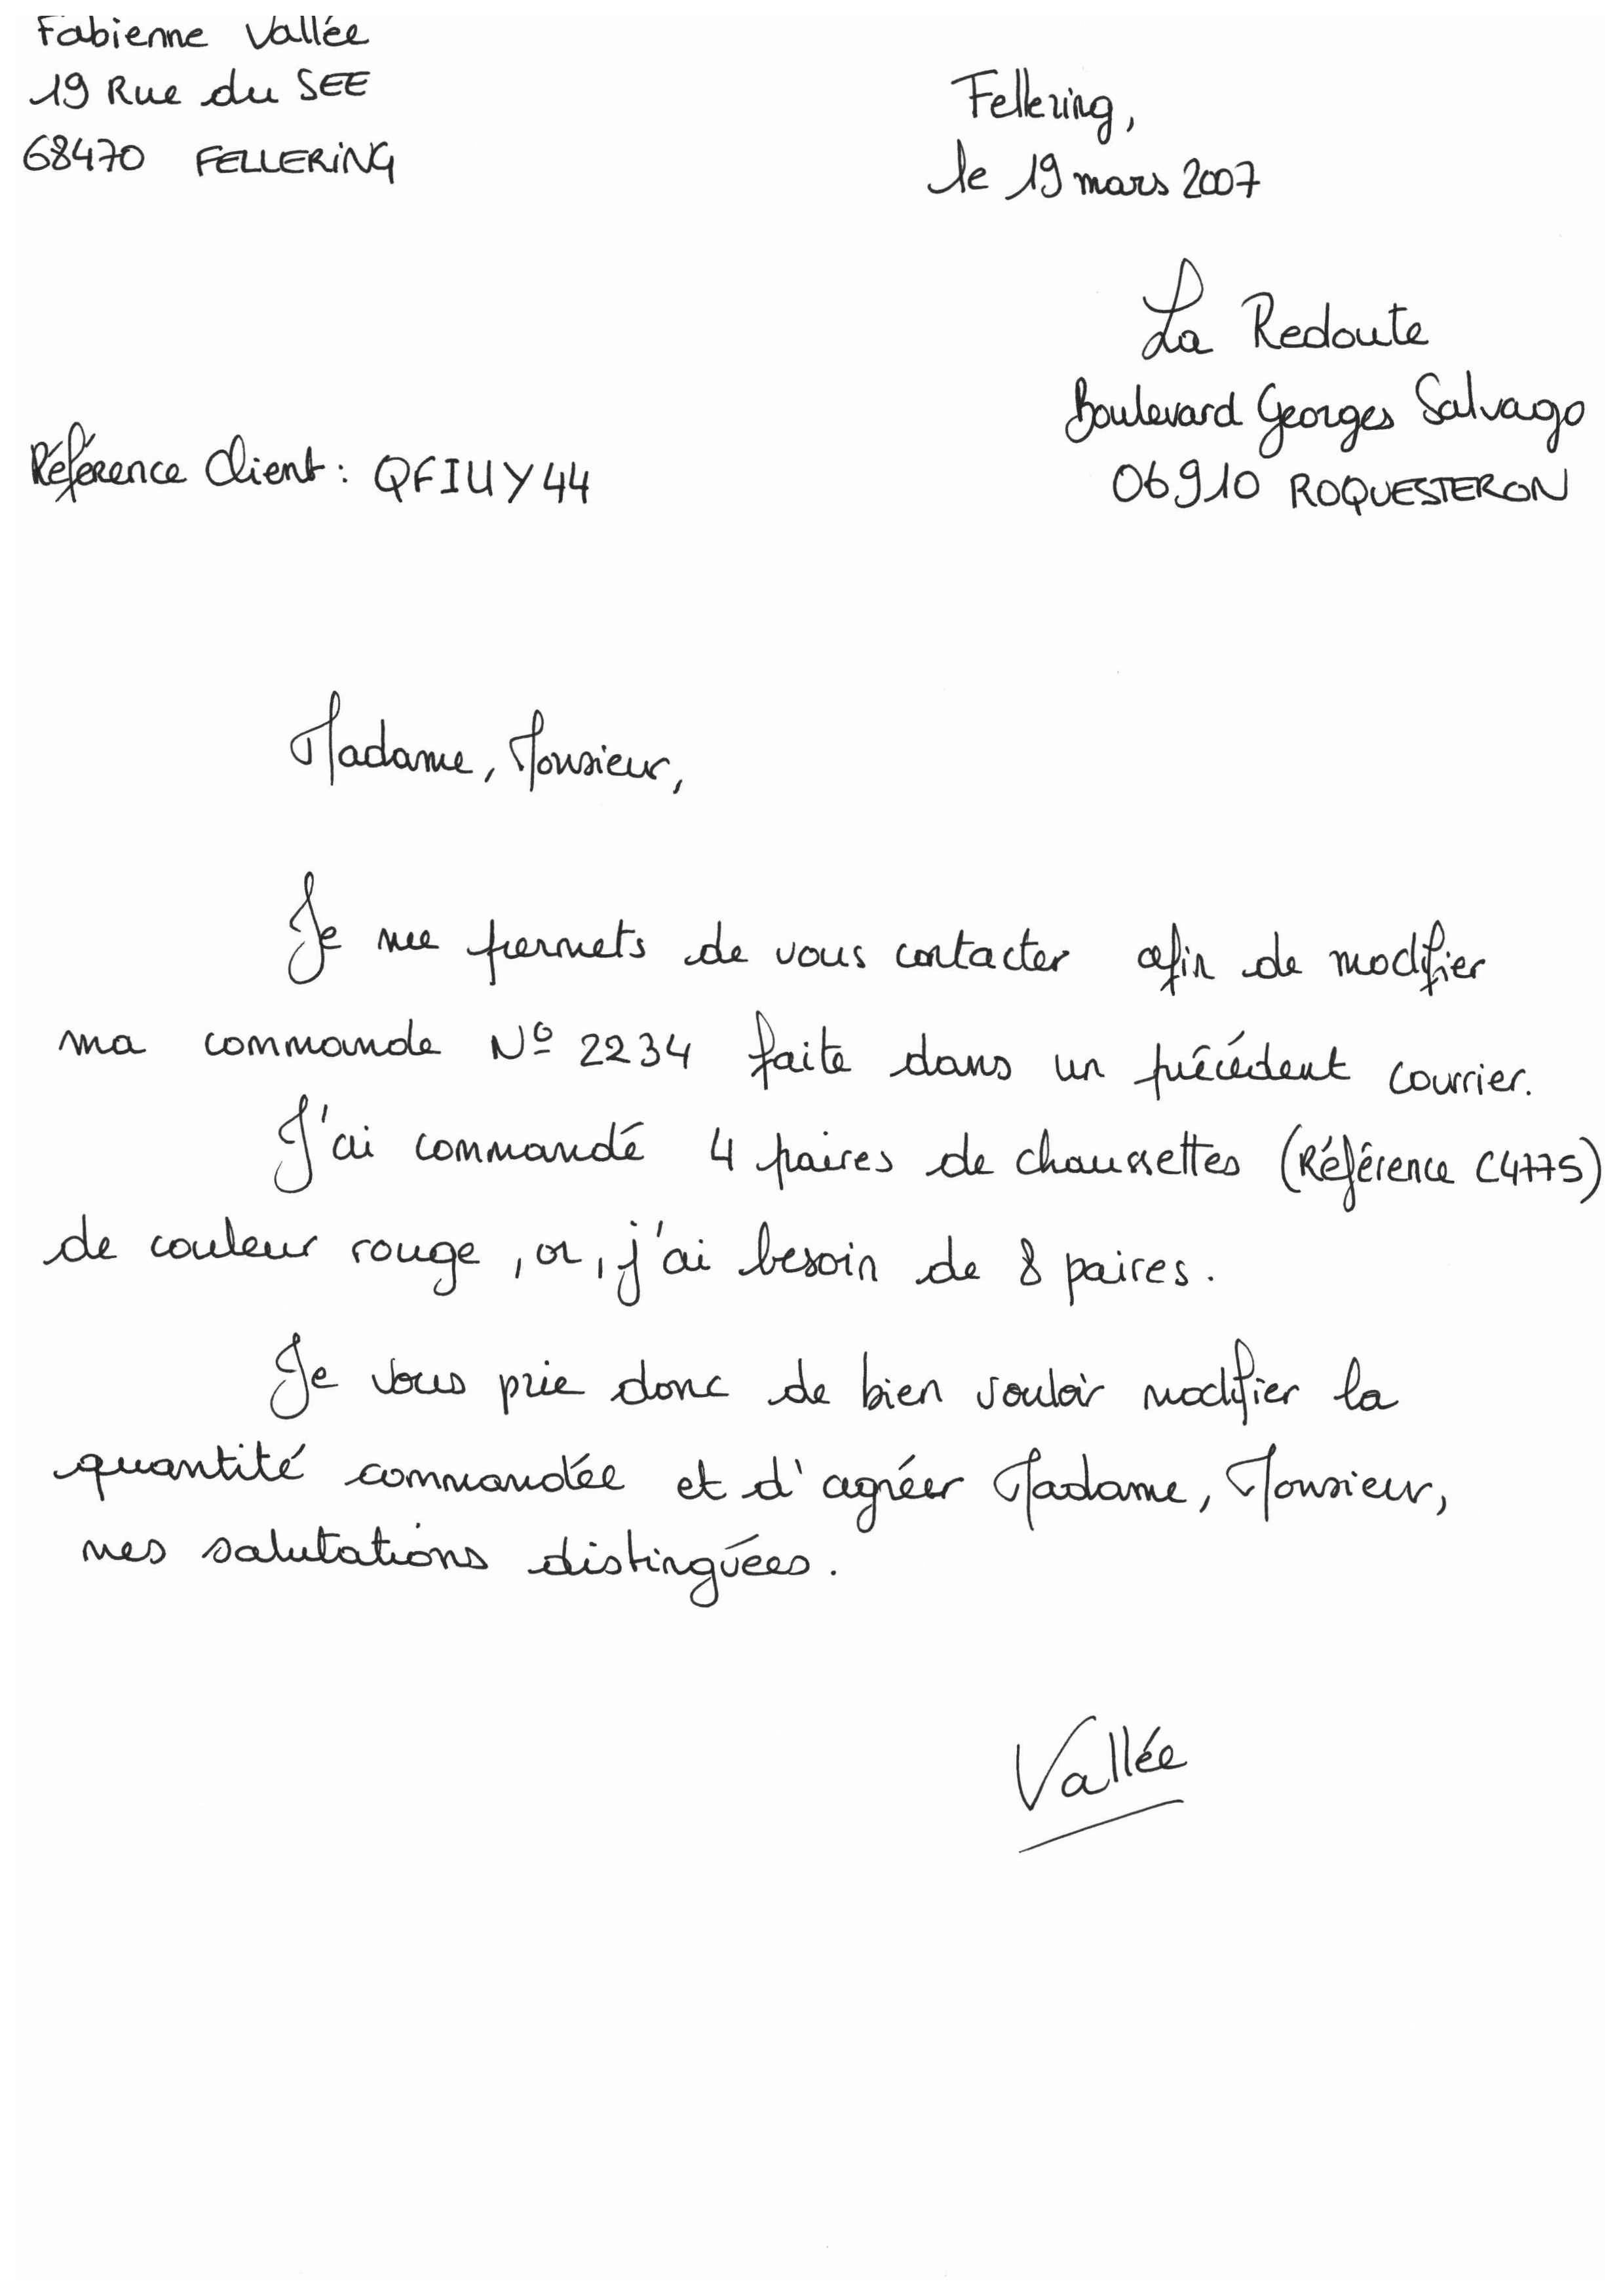 Fabienne Vallée
19 Rue du SEE
68470 FELLERING
Fellering,
le 19 mars 2007
La Redoute
Boulevard Georges Salvago
06910 ROQUESTERON
Référence Client : QFIUY44
Madame, Monsieur,
Je me permets de vous contacter afin de modifier
ma commande Nº 2234 faite dans un précédent courrier.
J'ai commandé 4 paires de chaussettes (Référence C4775)
de couleur rouge, or, j'ai besoin de 8 paires.
Je vous prie donc de bien vouloir modifier la
quantité commandée et d'agréer Madame, Monsieur,
mes salutations distinguées.
Vallée